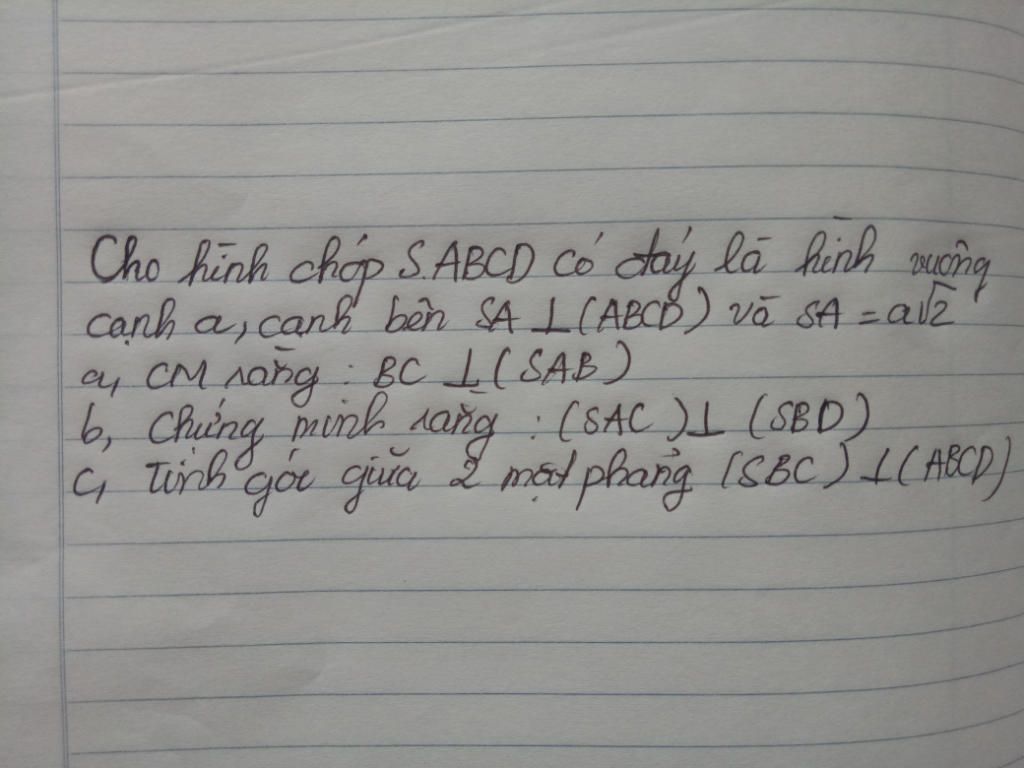 Cho hình chóp S.ABCD có đáy là hình vuông
cạnh a, cạnh bên SA ⊥ (ABCD) và SA = a√2
a, CM rằng : BC ⊥ (SAB)
b, Chứng minh rằng : (SAC) ⊥ (SBD)
c, Tính góc giữa 2 mặt phẳng (SBC) ⊥ (ABCD)